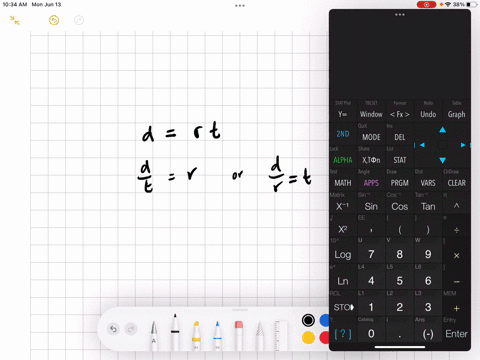 10:34 AM Mon Jun 13
38%
d = r t
d/t = r or d/r = t
STAT PLOT TBLSET Format Calc Table
Y= Window < Fx > Undo Graph
Quit Ins
2ND MODE DEL
Lock Link List
ALPHA X,TΦn STAT
Test Angle Draw Distr ClrDraw
MATH APPS PRGM VARS CLEAR
Matrix Sin⁻¹ Cos⁻¹ Tan⁻¹ π
X⁻¹ Sin Cos Tan ^
√ EE { } e
X² , ( ) ÷
10ˣ U V W [
Log 7 8 9 ×
eˣ L4 L5 L6 ]
Ln 4 5 6 −
RCL L1 L2 L3 MEM
STO 1 2 3 +
Catalog i Ans Entry
[ ? ] 0 . (-) Enter